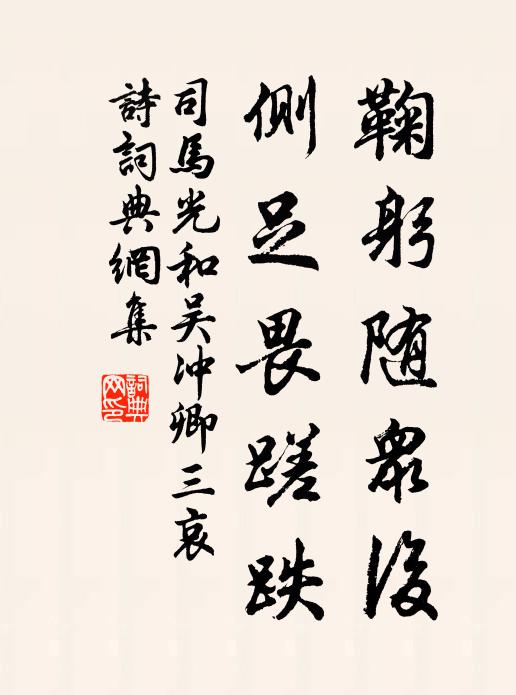 鞠躬随衆後
側足畏蹉跌
司馬光和吴沖卿三哀
詩詞典網集
詞典網印